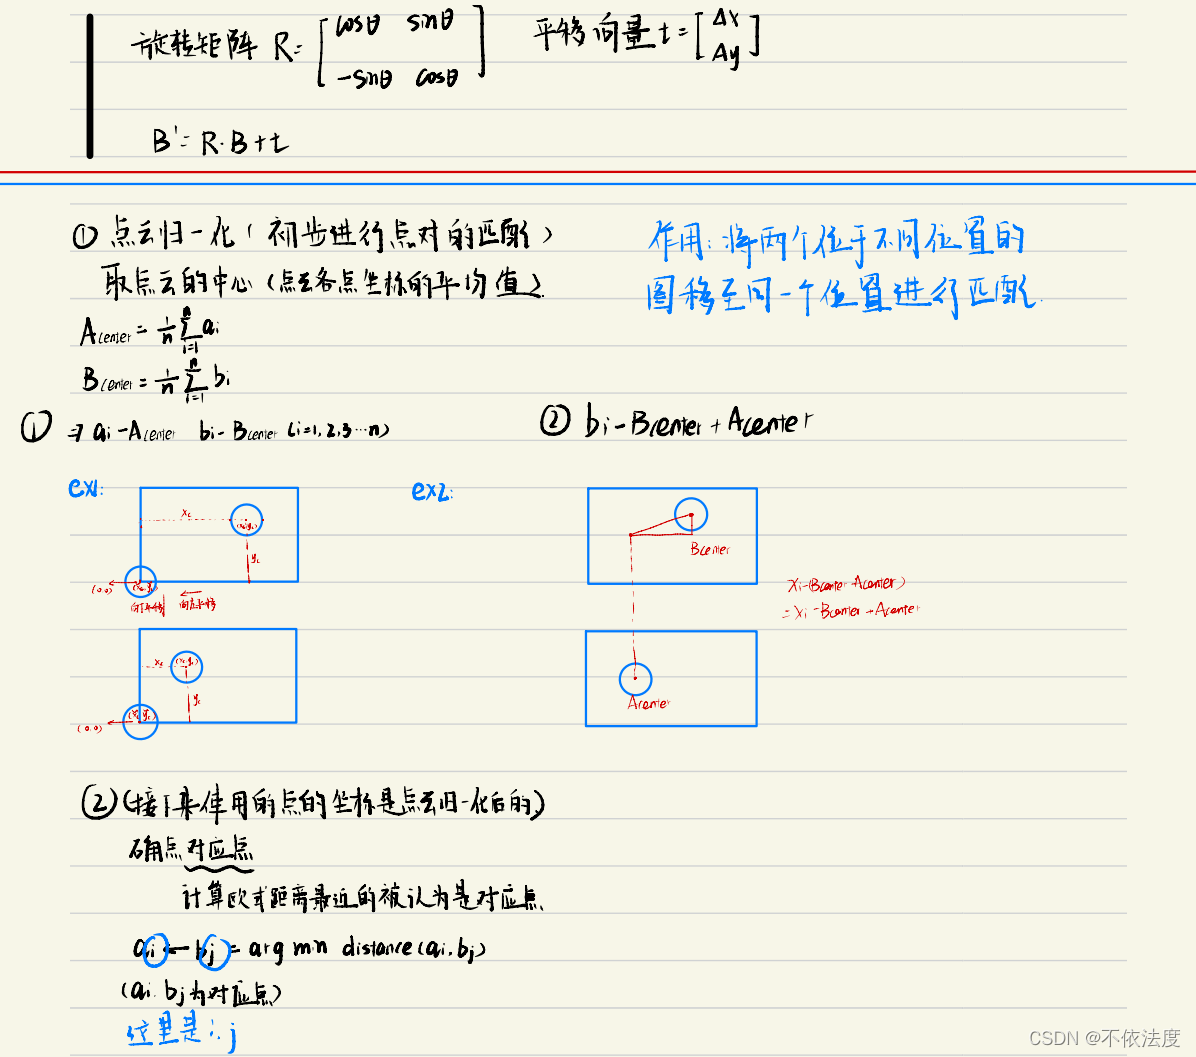 旋转矩阵 R= [cosθ sinθ
-sinθ cosθ]
平移向量 t= [Δx
Δy]
B'= R·B+t
① 点云归一化(初步进行点对的匹配)
取点云的中心(点云各点坐标的平均值)
作用:将两个位于不同位置的
图移至同一个位置进行匹配.
Acenter = 1/n ∑ᵢ₌₁ⁿ ai
Bcenter = 1/n ∑ᵢ₌₁ⁿ bi
① ⇒ ai-Acenter bi-Bcenter (i=1,2,3…n)
② bi-Bcenter+Acenter
ex1:
xc
(xc,yc)
yc
(0,0)
(xc,yc)
向下平移
向左平移
xc
(xc,yc)
yc
(0,0)
(xc,yc)
ex2:
Bcenter
Acenter
xi-(Bcenter-Acenter)
=xi-Bcenter+Acenter
②(接下来使用的点的坐标是点云归一化后的)
确点对应点
计算欧式距离最近的被认为是对应点
ai ← bj = arg min distance(ai,bj)
(ai,bj为对应点)
这里是i,j
CSDN @不依法度